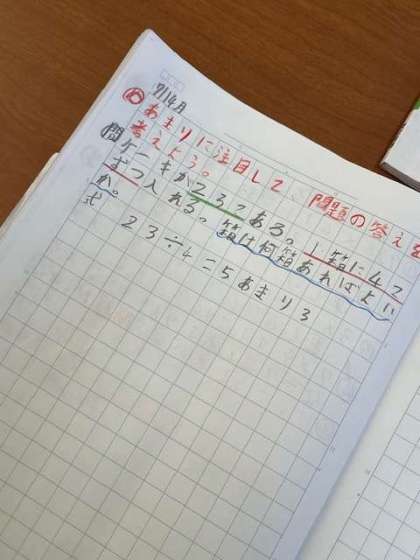 7/14月
めあまりに注目して、問題の答えを
考えよう。
問ケーキが23こある。1箱に4こ
ずつ入れる。箱は何箱あればよい
か。
式 23÷4=5あまり3